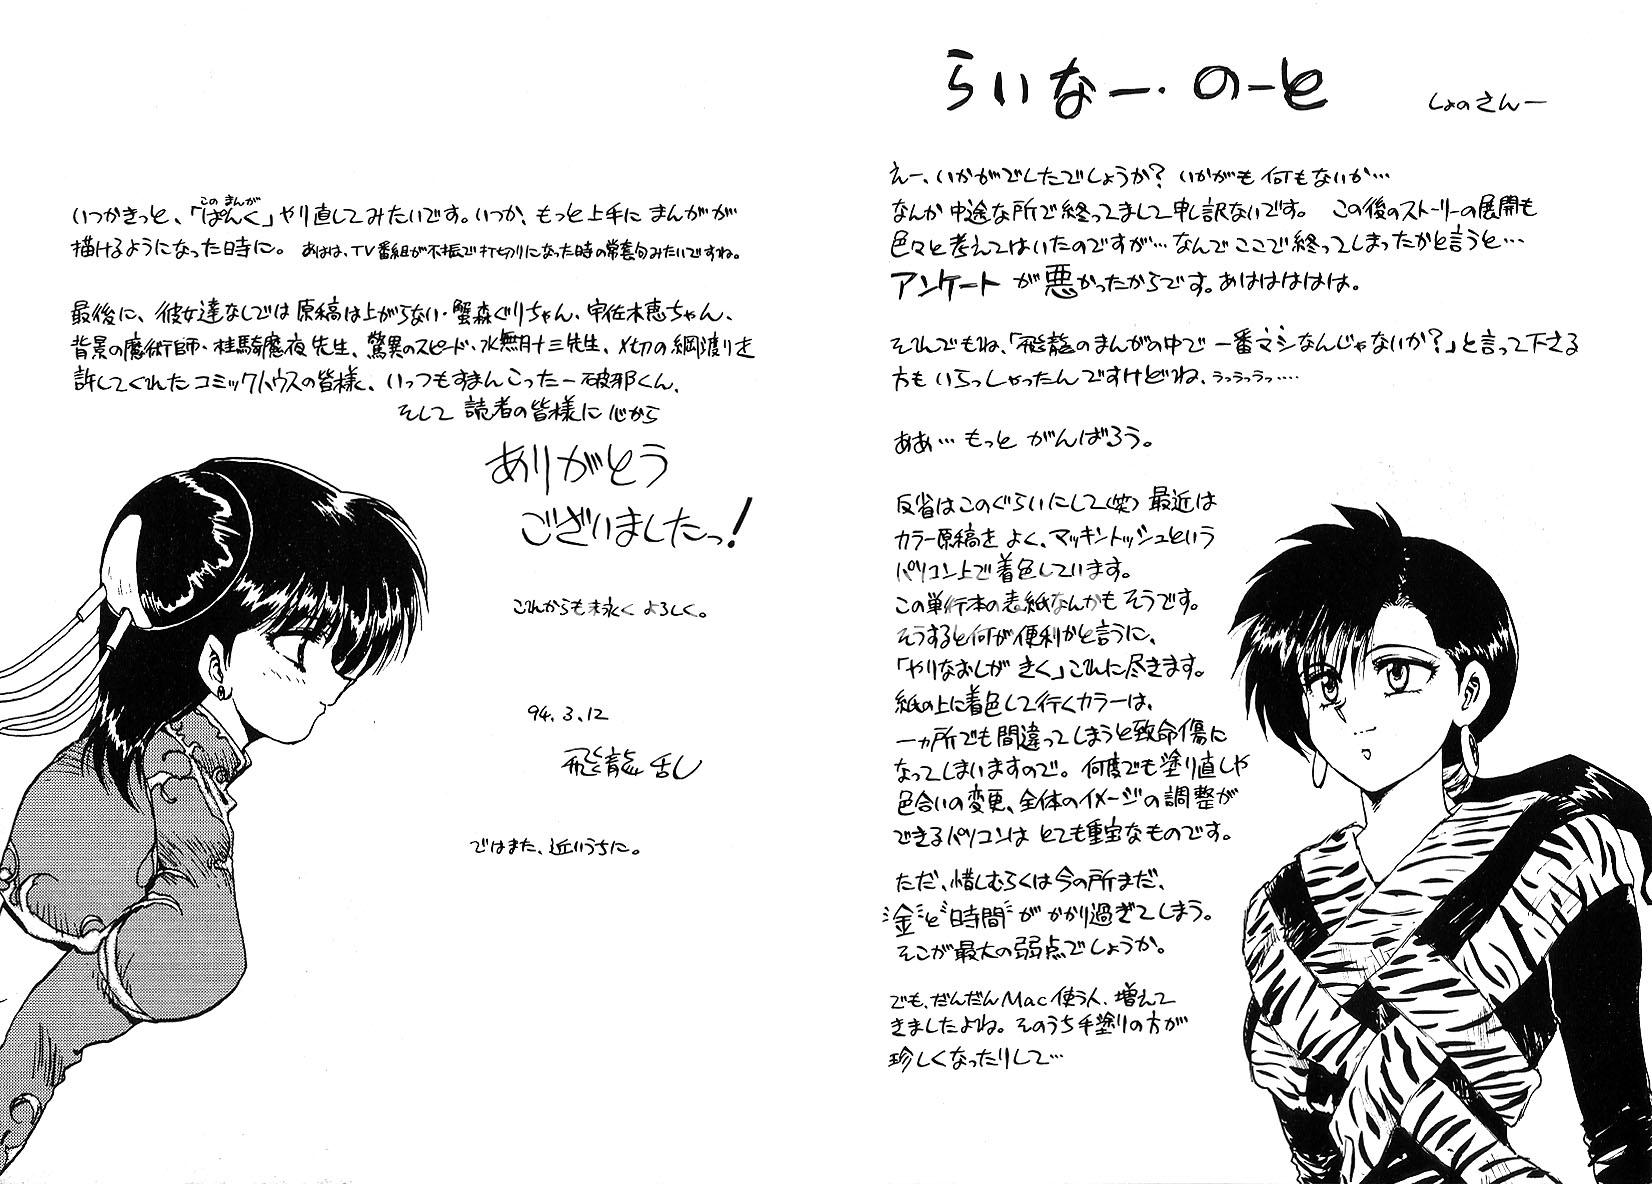 らいなー・のーと
しょのさんー
えー、いかがでしたでしょうか? いかがも何もないか…
なんか中途な所で終ってまして申し訳ないです。 この後のストーリーの展開も
色々と考えてはいたのですが…なんでここで終ってしまったかと言うと…
アンケートが悪かったからです。あはははははは。
それでもね、「飛龍のまんがの中で一番マシなんじゃないか?」と言って下さる
方もいらっしゃったんですけどね、ぅっぅっぅっ….
ああ… もっと がんばろう。
反省はこのぐらいにして(笑) 最近は
カラー原稿を よく、マッキントッシュという
パソコン上で着色しています。
この単行本の表紙なんかも そうです。
そうすると何が便利かと言うに、
「やりなおしが きく」これに尽きます。
紙の上に着色して行くカラーは、
一ヵ所でも間違ってしまうと致命傷に
なってしまいますので。何度でも塗り直しや
色合いの変更、全体のイメージの調整が
できるパソコンは とても重宝なものです。
ただ、惜しむらくは今の所まだ、
"金"と"時間"が かかり過ぎてしまう。
そこが最大の弱点でしょうか。
でも、だんだんMac使う人、増えて
きましたよね。そのうち手塗りの方が
珍しくなったりして…
このまんが
いつかきっと、「ぱんく」やり直してみたいです。いつか、もっと上手に まんがが
描けるようになった時に。 あはは、TV番組が不振で打切りになった時の常套句みたいですね。
最後に、彼女達なしでは原稿は上がらない・蟹森ぐりちゃん、宇佐木恵ちゃん、
背景の魔術師・桂騎魔夜先生、驚異のスピード・水無月十三先生、〆切の綱渡りを
許してくれたコミックハウスの皆様、いつもすまんこったー破邪くん、
そして 読者の皆様に 心から
ありがとう
ございましたっ!
これからも末永く よろしく。
94.3.12
飛龍 乱
ではまた、近いうちに。